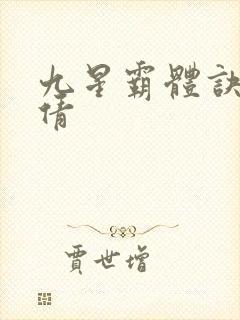 九星霸體訣
倩
賈世增